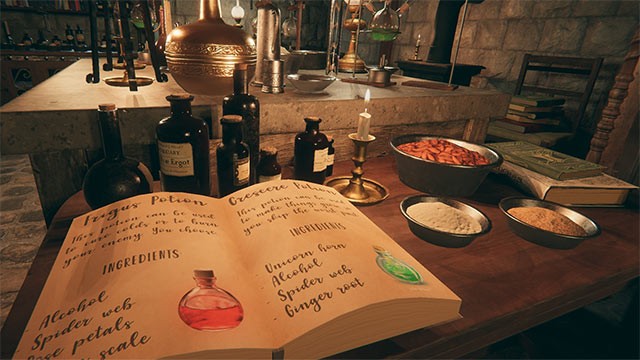 Ergot
Frigus Potion
This potion can be used
to cure colds or to burn
your enemy. You choose.
INGREDIENTS
Alcohol
Spider web
Rose petals
scale
Crescere Potion
This potion can be
to make things grow
you skip the
INGREDIENTS
Unicorn horn
Alcohol
Spider web
Ginger root